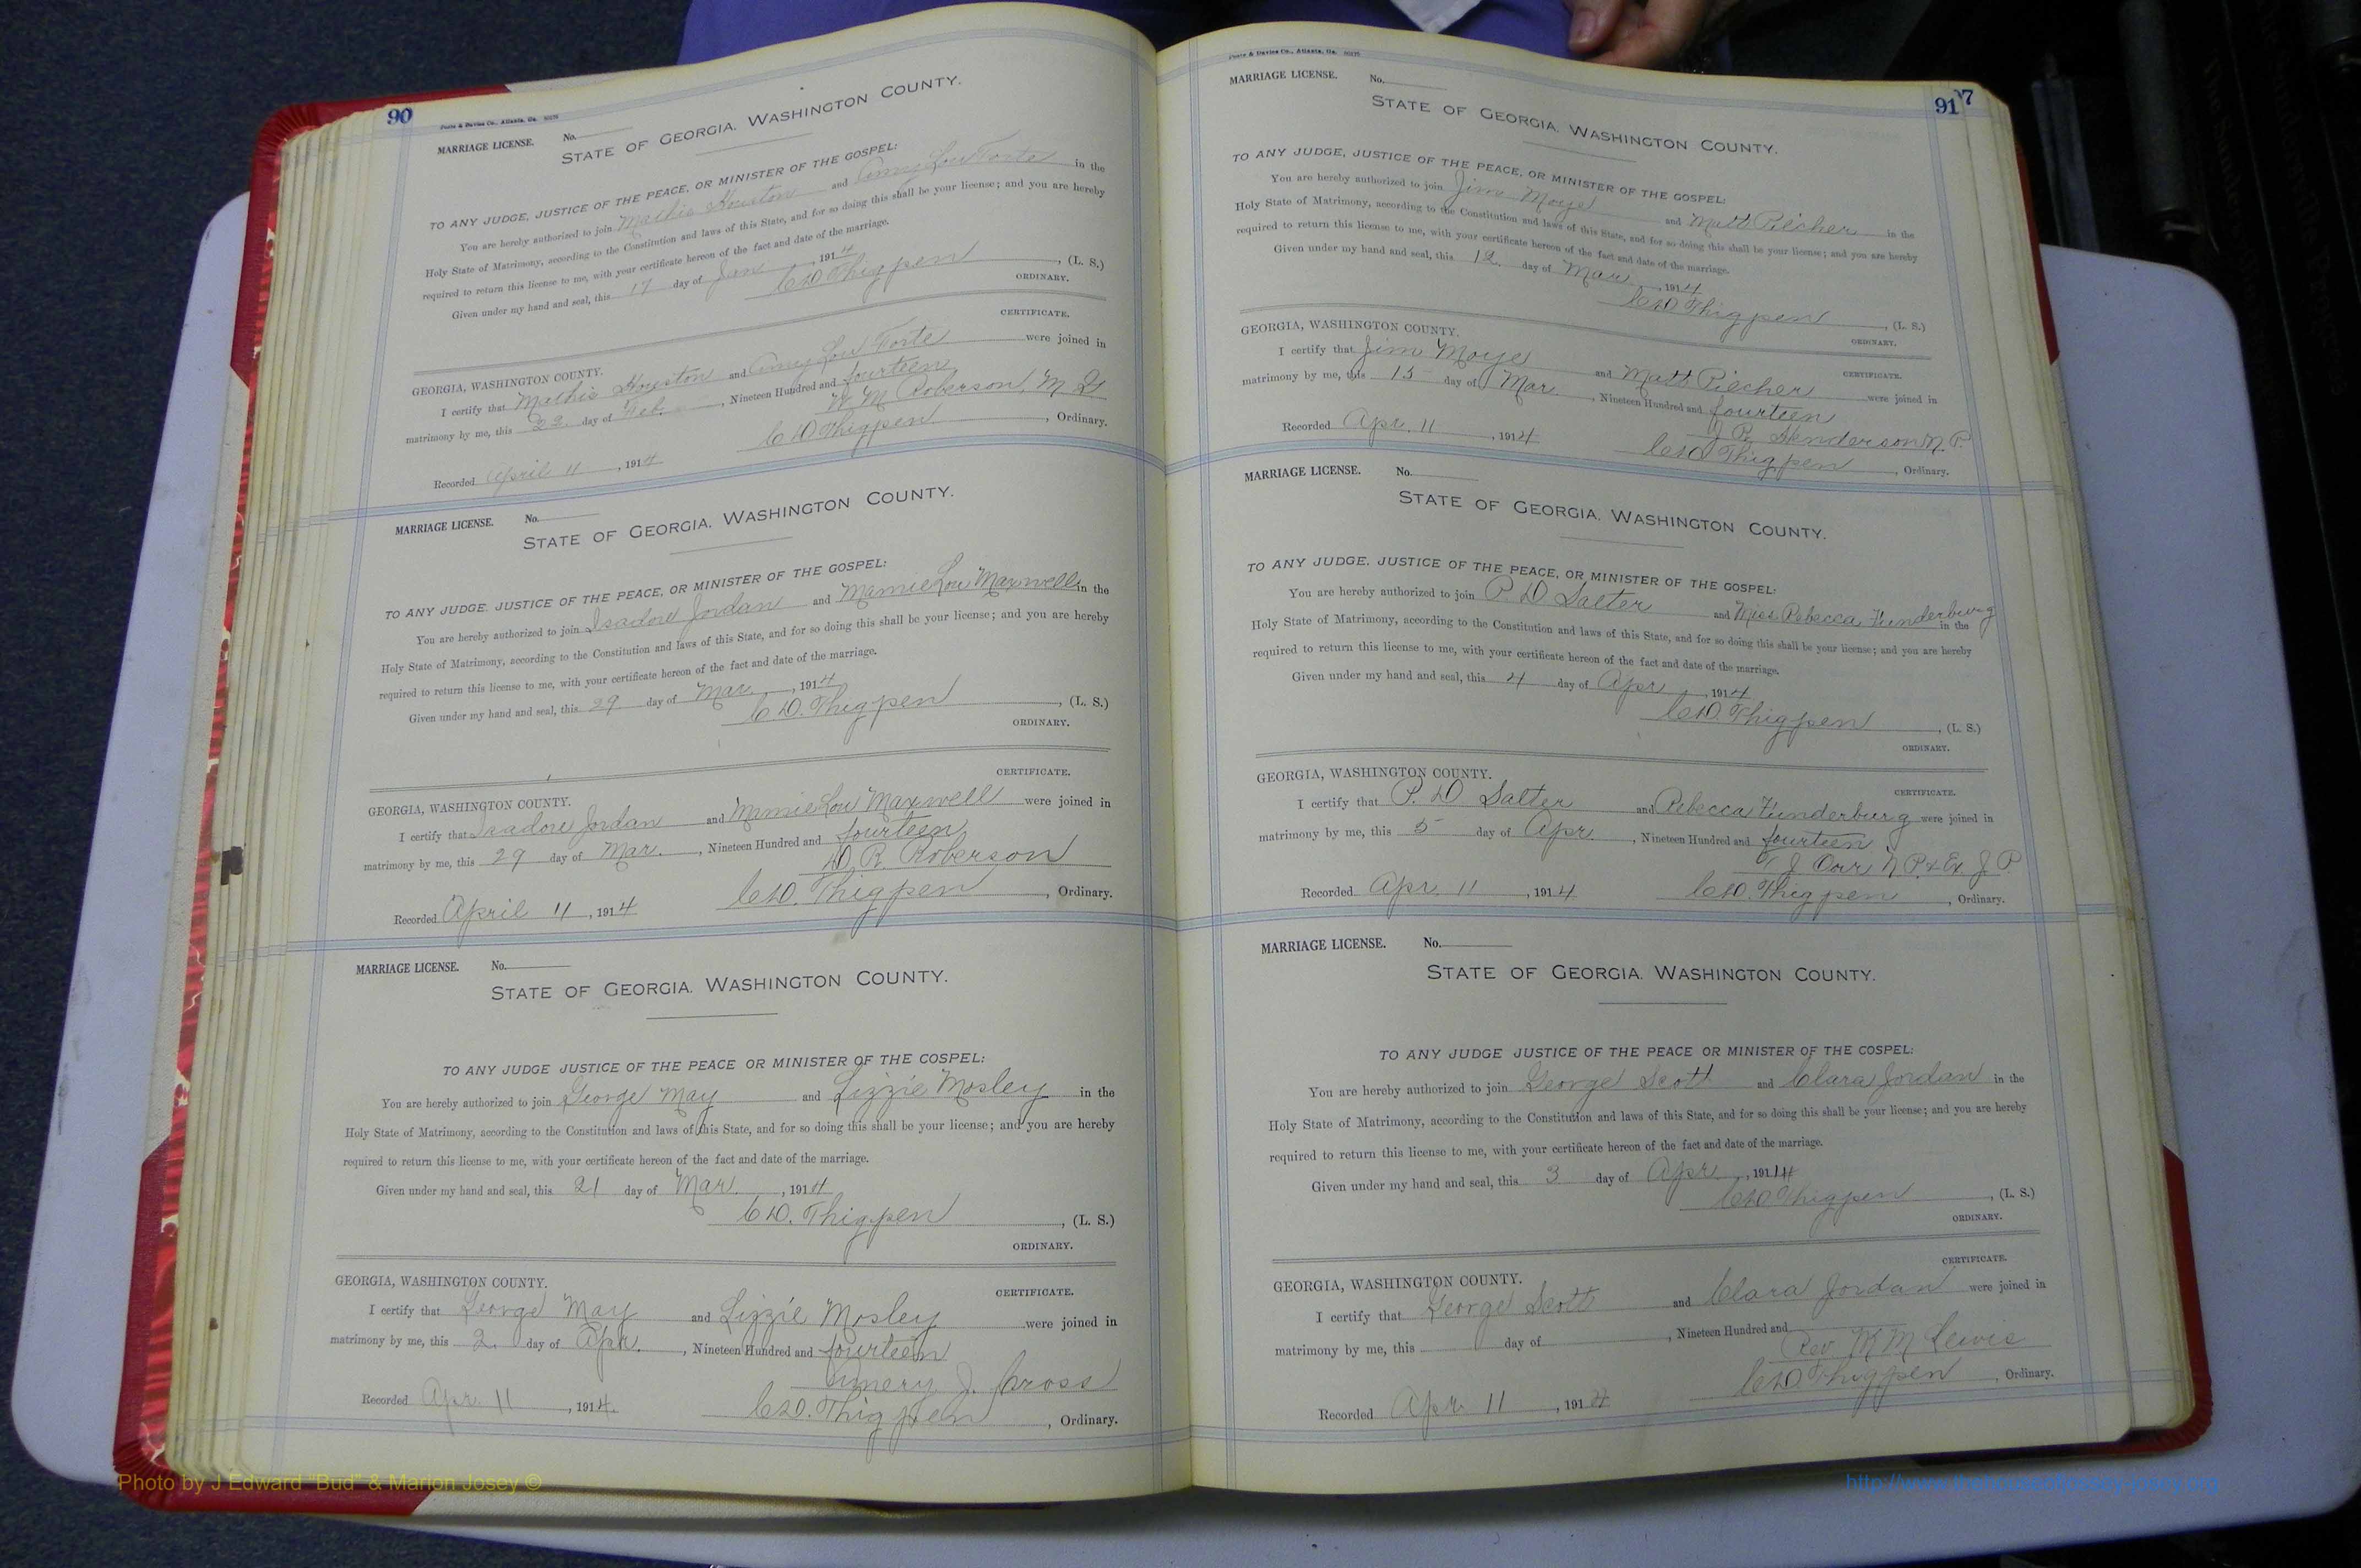 90
Foote & Davies Co., Atlanta, Ga.
MARRIAGE LICENSE. No.
STATE OF GEORGIA, WASHINGTON COUNTY.
TO ANY JUDGE, JUSTICE OF THE PEACE, OR MINISTER OF THE GOSPEL:
You are hereby authorized to join Mathis Houston and Amy Lou Forte in the
Holy State of Matrimony, according to the Constitution and laws of this State, and for so doing this shall be your license; and you are hereby
required to return this license to me, with your certificate hereon of the fact and date of the marriage.
Given under my hand and seal, this 17 day of Jan, 1914
C D Thigpen, (L. S.)
ORDINARY.
CERTIFICATE.
GEORGIA, WASHINGTON COUNTY.
I certify that Mathis Houston and Amy Lou Forte were joined in
matrimony by me, this 22 day of Feb., Nineteen Hundred and fourteen
W M Roberson, M G
Recorded April 11, 1914 C D Thigpen, Ordinary.
MARRIAGE LICENSE. No.
STATE OF GEORGIA, WASHINGTON COUNTY.
TO ANY JUDGE, JUSTICE OF THE PEACE, OR MINISTER OF THE GOSPEL:
You are hereby authorized to join Isadore Jordan and Mamie Lou Maxwell in the
Holy State of Matrimony, according to the Constitution and laws of this State, and for so doing this shall be your license; and you are hereby
required to return this license to me, with your certificate hereon of the fact and date of the marriage.
Given under my hand and seal, this 29 day of Mar, 1914
C D. Thigpen, (L. S.)
ORDINARY.
CERTIFICATE.
GEORGIA, WASHINGTON COUNTY.
I certify that Isadore Jordan and Mamie Lou Maxwell were joined in
matrimony by me, this 29 day of Mar., Nineteen Hundred and fourteen
D. R. Roberson
Recorded April 11, 1914 C D. Thigpen, Ordinary.
MARRIAGE LICENSE. No.
STATE OF GEORGIA, WASHINGTON COUNTY.
TO ANY JUDGE JUSTICE OF THE PEACE OR MINISTER OF THE GOSPEL:
You are hereby authorized to join George May and Lizzie Mosley in the
Holy State of Matrimony, according to the Constitution and laws of this State, and for so doing this shall be your license; and you are hereby
required to return this license to me, with your certificate hereon of the fact and date of the marriage.
Given under my hand and seal, this 21 day of Mar., 1914
C D. Thigpen, (L. S.)
ORDINARY.
CERTIFICATE.
GEORGIA, WASHINGTON COUNTY.
I certify that George May and Lizzie Mosley were joined in
matrimony by me, this 2. day of Apr., Nineteen Hundred and fourteen
Emery J. Cross
Recorded Apr. 11, 1914. C D. Thigpen, Ordinary.
91
7
Foote & Davies Co., Atlanta, Ga.
MARRIAGE LICENSE. No.
STATE OF GEORGIA, WASHINGTON COUNTY.
TO ANY JUDGE, JUSTICE OF THE PEACE, OR MINISTER OF THE GOSPEL:
You are hereby authorized to join Jim Moye and Matt Piecher in the
Holy State of Matrimony, according to the Constitution and laws of this State, and for so doing this shall be your license; and you are hereby
required to return this license to me, with your certificate hereon of the fact and date of the marriage.
Given under my hand and seal, this 12. day of Mar, 1914
C D Thigpen, (L. S.)
ORDINARY.
CERTIFICATE.
GEORGIA, WASHINGTON COUNTY.
I certify that Jim Moye and Matt Piecher were joined in
matrimony by me, this 15 day of Mar., Nineteen Hundred and fourteen
J R Henderson N. P.
Recorded Apr. 11, 1914 C D Thigpen, Ordinary.
MARRIAGE LICENSE. No.
STATE OF GEORGIA, WASHINGTON COUNTY.
TO ANY JUDGE, JUSTICE OF THE PEACE, OR MINISTER OF THE GOSPEL:
You are hereby authorized to join P. D Salter and Miss Rebecca Funderburg in the
Holy State of Matrimony, according to the Constitution and laws of this State, and for so doing this shall be your license; and you are hereby
required to return this license to me, with your certificate hereon of the fact and date of the marriage.
Given under my hand and seal, this 4 day of Apr, 1914
C D. Thigpen, (L. S.)
ORDINARY.
CERTIFICATE.
GEORGIA, WASHINGTON COUNTY.
I certify that P. D Salter and Rebecca Funderburg were joined in
matrimony by me, this 5 day of Apr., Nineteen Hundred and fourteen
J Orr N P. & Ex J P.
Recorded Apr 11, 1914 C D. Thigpen, Ordinary.
MARRIAGE LICENSE. No.
STATE OF GEORGIA, WASHINGTON COUNTY.
TO ANY JUDGE JUSTICE OF THE PEACE OR MINISTER OF THE GOSPEL:
You are hereby authorized to join George Scott and Clara Jordan in the
Holy State of Matrimony, according to the Constitution and laws of this State, and for so doing this shall be your license; and you are hereby
required to return this license to me, with your certificate hereon of the fact and date of the marriage.
Given under my hand and seal, this 3 day of Apr, 1914
C D Thigpen, (L. S.)
ORDINARY.
CERTIFICATE.
GEORGIA, WASHINGTON COUNTY.
I certify that George Scott and Clara Jordan were joined in
matrimony by me, this day of, Nineteen Hundred and
Rev. W M Lewis
Recorded Apr. 11, 1914 C D. Thigpen, Ordinary.
Photo by J Edward "Bud" & Marion Josey ©
http://www.thehouseofjossey-josey.org